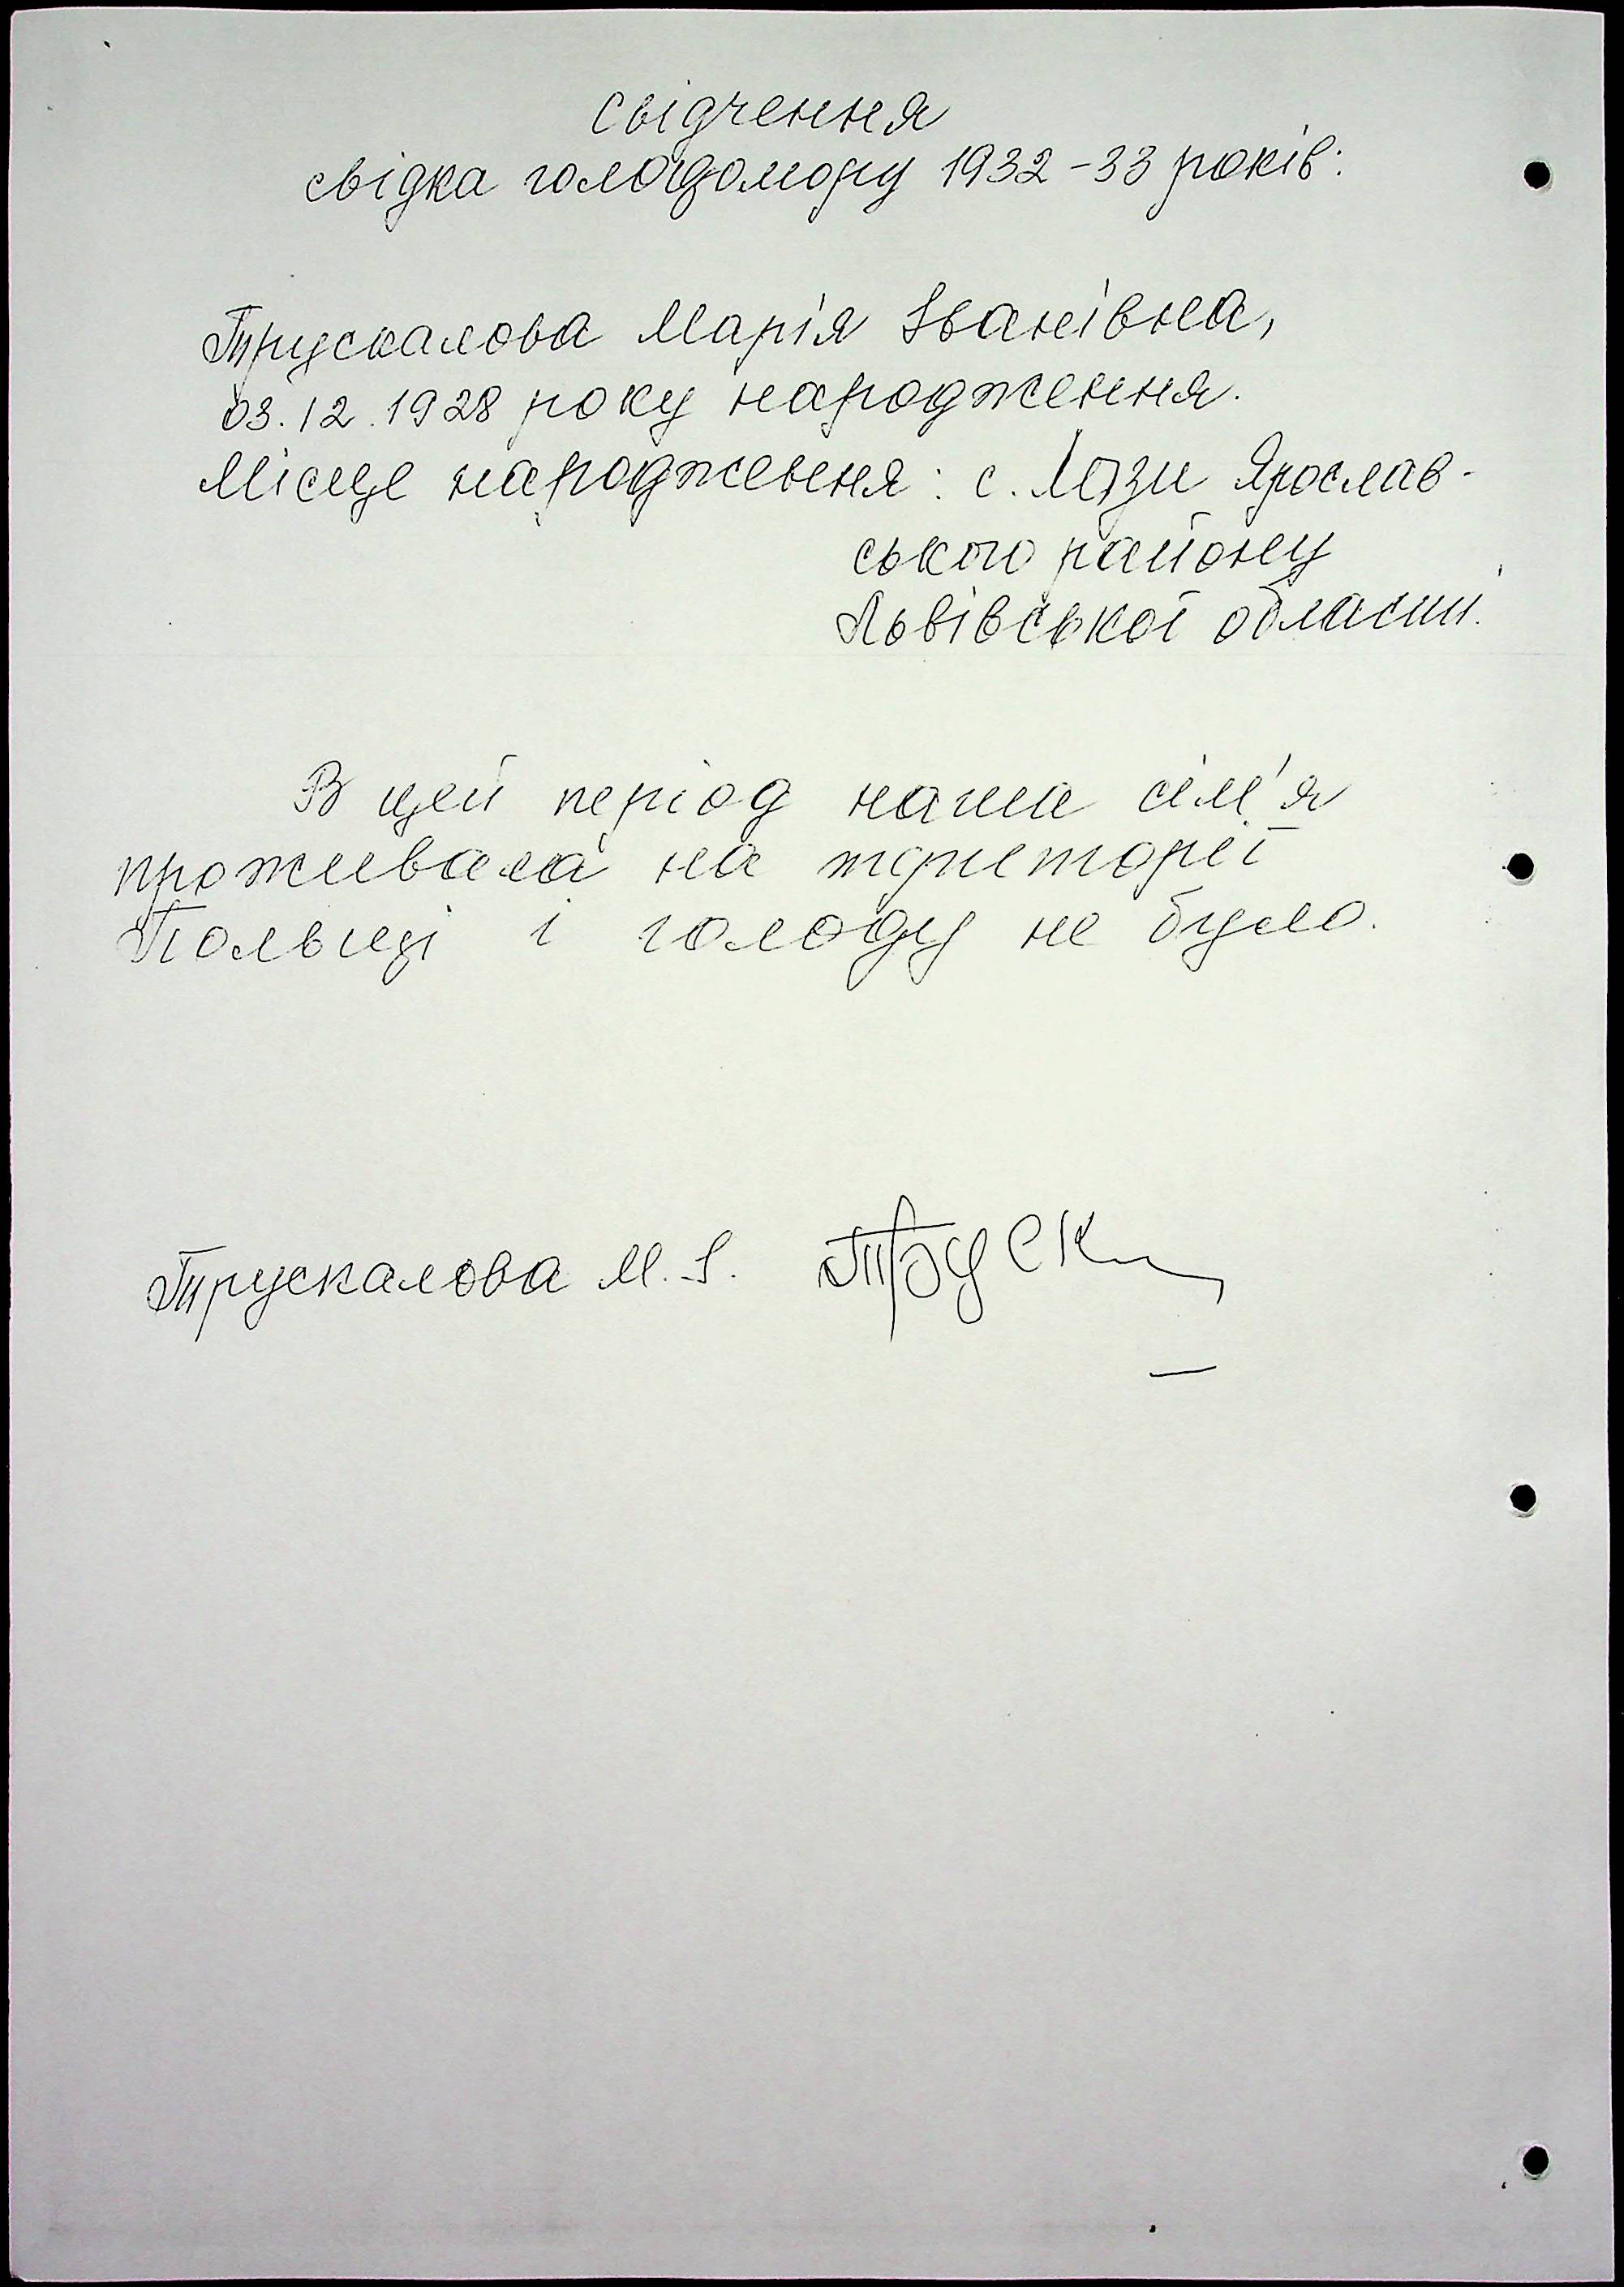 Свідчення
свідка голодомору 1932-33 років:
Трускалова Марія Іванівна,
03.12.1928 року народження.
Місце народження: с. Лази Ярослав-
ського району
Львівської області.
В цей період наша сім'я
проживала на території
Польщі і голоду не було.
Трускалова М. І. Труск